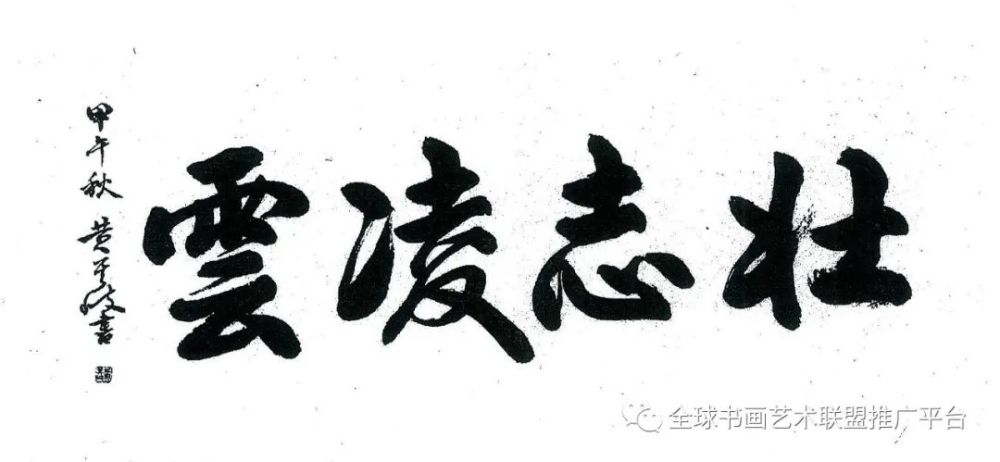 壮志凌雲
甲午秋 黄平波書
全球书画艺术联盟推广平台